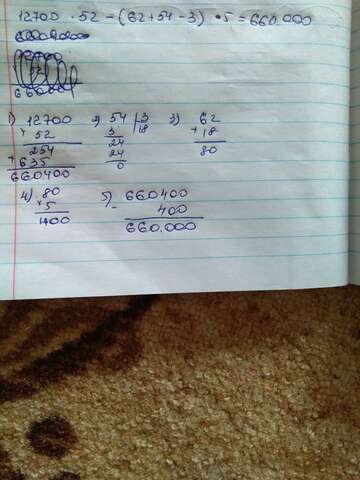 12700 · 52 - (62+54 - 3) · 5 = 660.000
1) 12700 2) 54 | 3 3) 62
× 52 3 18 + 18
254 24 80
+ 635 24
660400 0
4) 80 5) - 660400
× 5 400
400 660.000